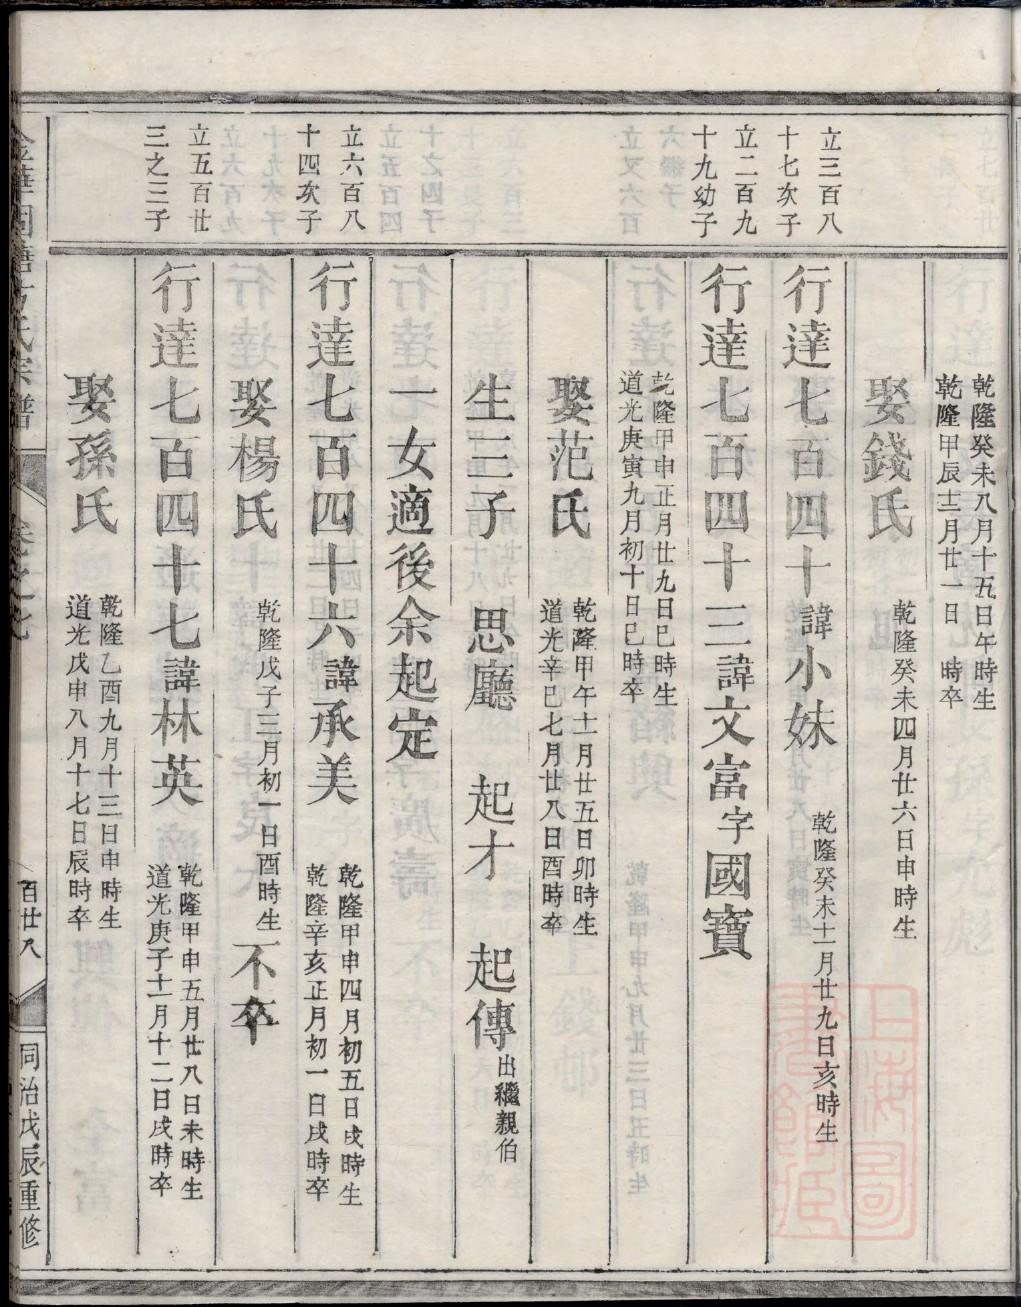 乾隆癸未八月十五日午時生
乾隆甲辰十二月廿一日　時卒
娶錢氏
乾隆癸未四月廿六日申時生
立三百八
十七次子
行達七百四十諱小妹
乾隆癸未十一月廿九日亥時生
立二百九
十九幼子
行達七百四十三諱文富字國寶
乾隆甲申正月廿九日巳時生
道光庚寅九月初十日巳時卒
娶范氏
乾隆甲午十一月廿五日卯時生
道光辛巳七月廿八日酉時卒
生三子　思廳　起才　起傳出繼親伯
一女適後余起定
立六百八
十四次子
行達七百四十六諱承美
乾隆甲申四月初五日戌時生
乾隆辛亥正月初一日戌時卒
娶楊氏
乾隆戊子三月初一日酉時生
不卒
立五百廿
三之三子
行達七百四十七諱林英
乾隆甲申五月廿八日未時生
道光庚子十一月十二日戌時卒
娶孫氏
乾隆乙酉九月十三日申時生
道光戊申八月十七日辰時卒
氏宗譜
卷之七
百廿八
同治戊辰重修